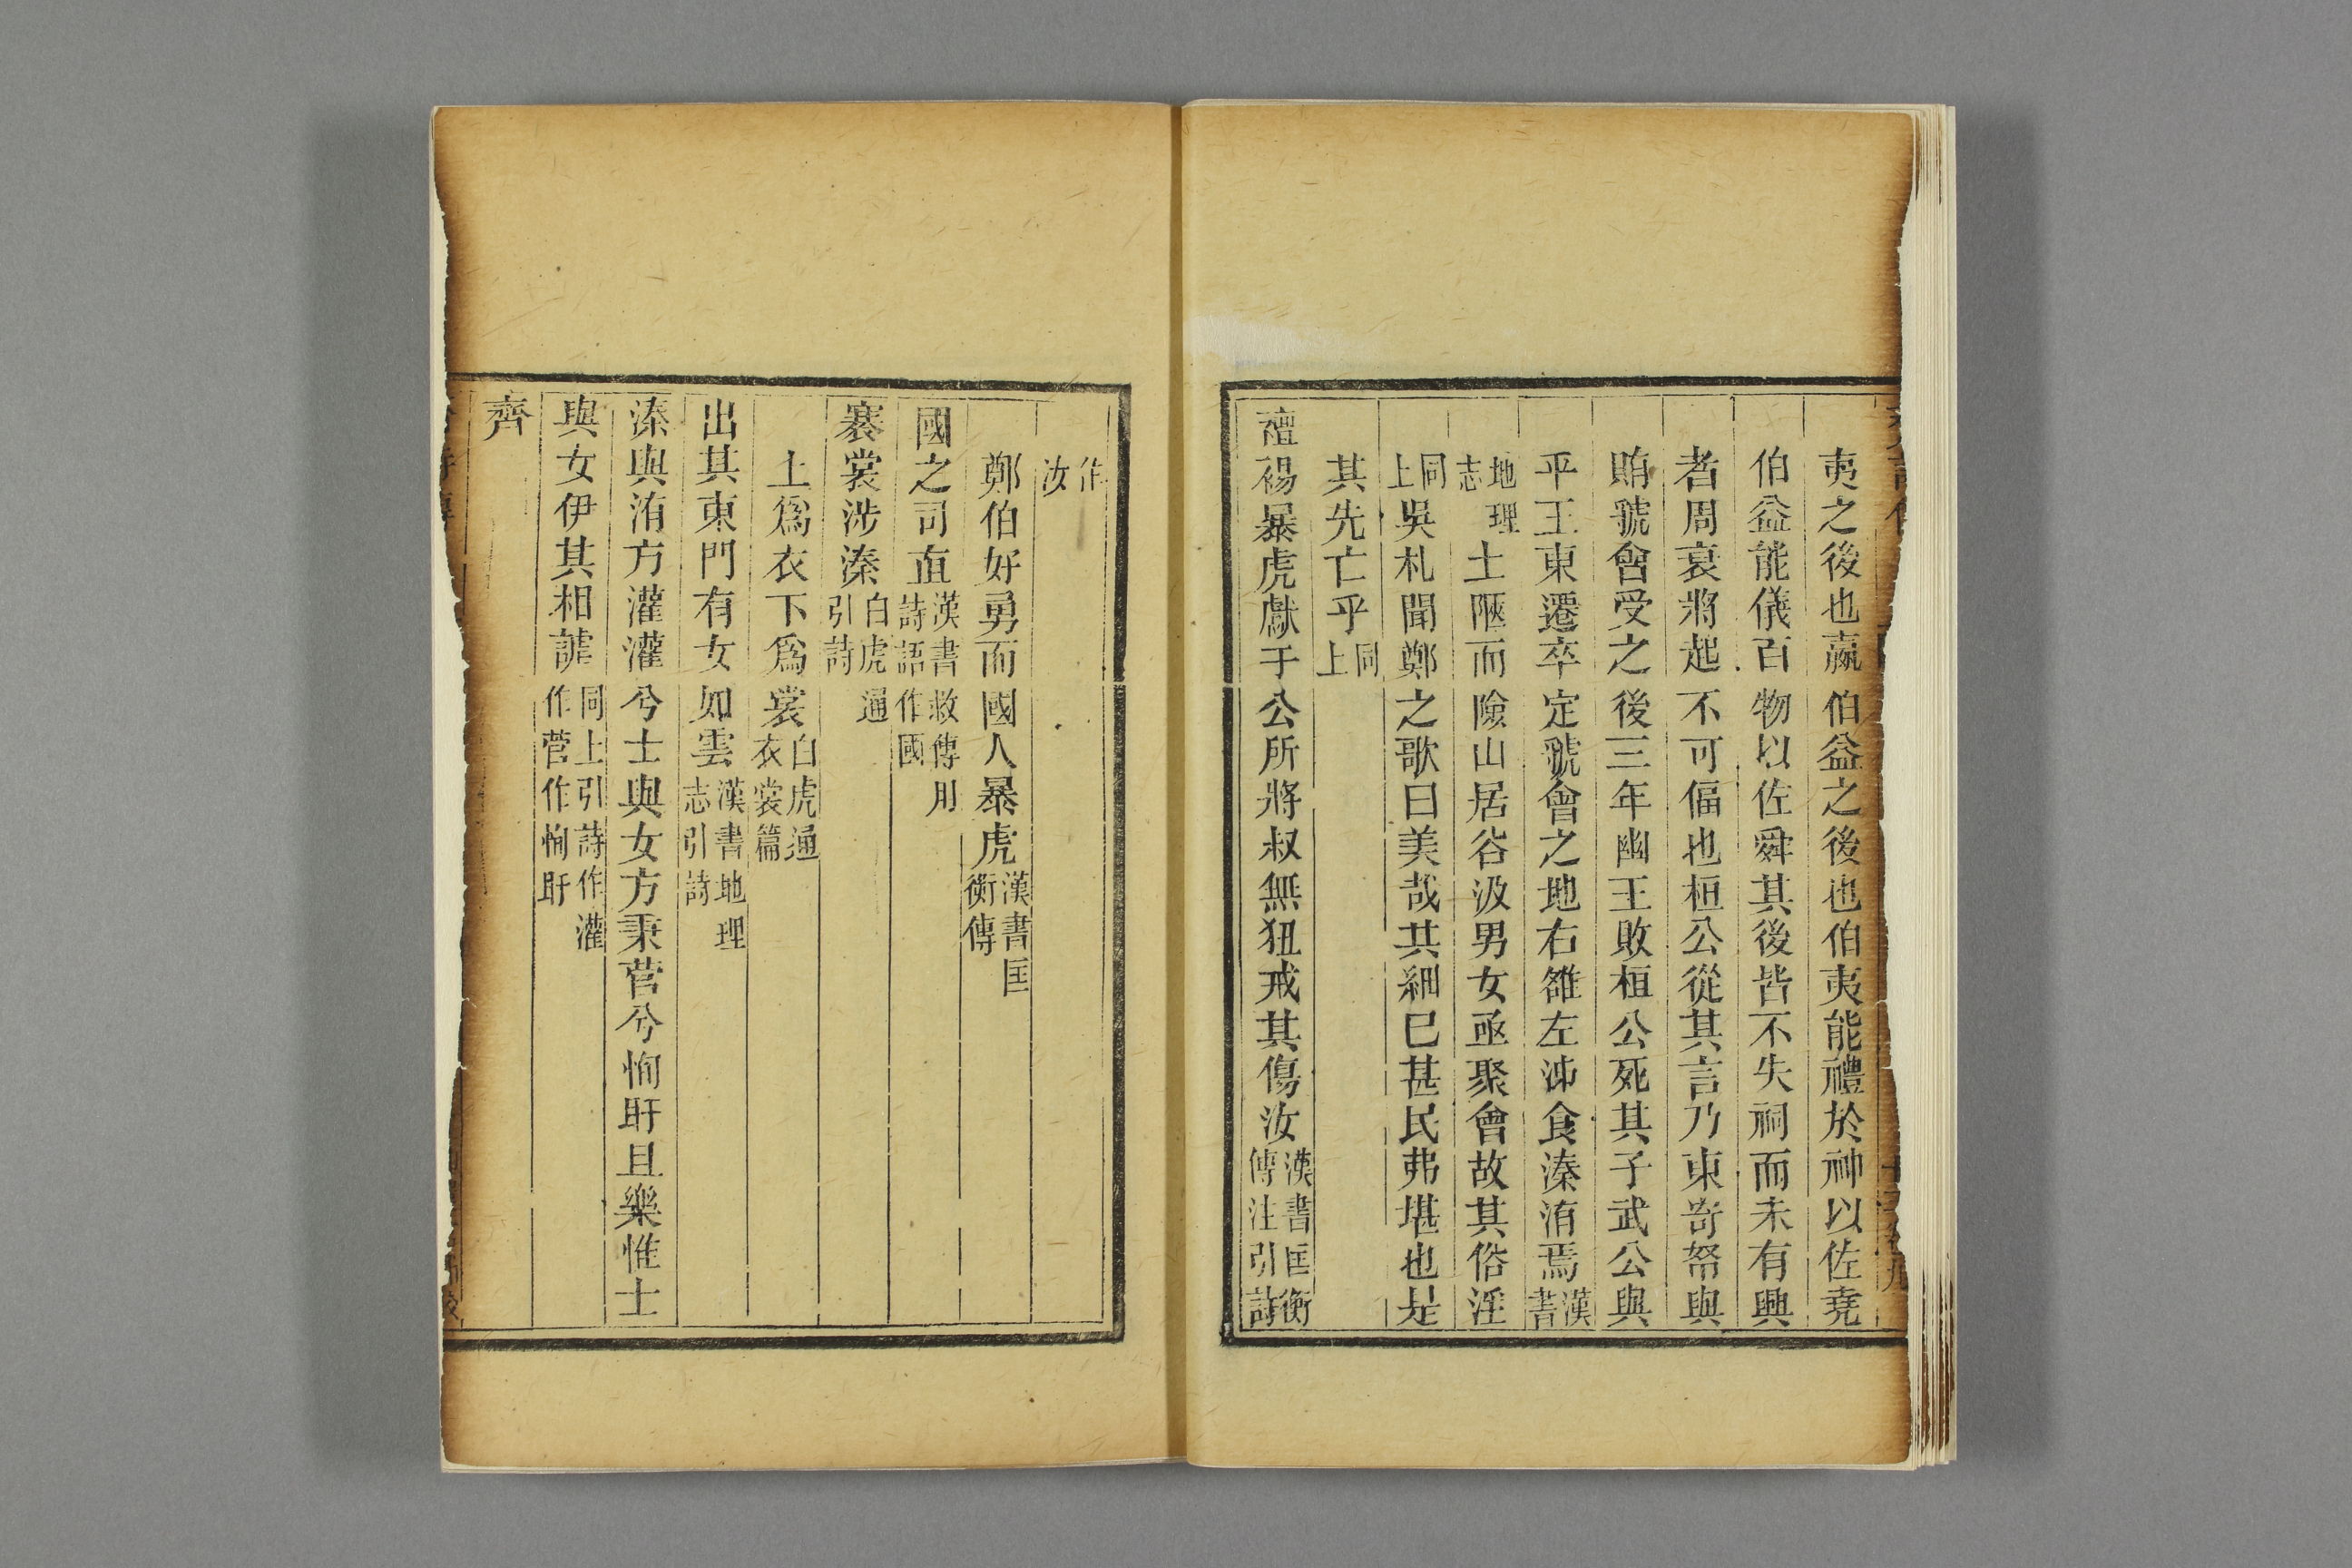 夷之後也嬴伯益之後也伯夷能禮於神以佐堯
伯益能儀百物以佐舜其後皆不失祠而未有興
者周衰將起不可偪也桓公從其言乃東寄帑與
賄虢會受之後三年幽王敗桓公死其子武公與
平王東遷卒定虢會之地右雒左泲食溱洧焉漢書
地理志土陿而險山居谷汲男女亟聚會故其俗淫
同上吳札聞鄭之歌曰美哉其細巳甚民弗堪也是
其先亡乎同上
襢裼暴虎獻于公所將叔無狃戒其傷汝漢書匡衡傳注引詩
作汝
鄭伯好勇而國人暴虎漢書匡衡傳
國之司直漢書敘傳用詩語作國
褰裳涉溱白虎通引詩
上爲衣下爲裳白虎通衣裳篇
出其東門有女如雲漢書地理志引詩
溱與洧方灌灌兮士與女方秉菅兮恂盱且樂惟士
與女伊其相謔同上引詩作灌作菅作恂盱
齊